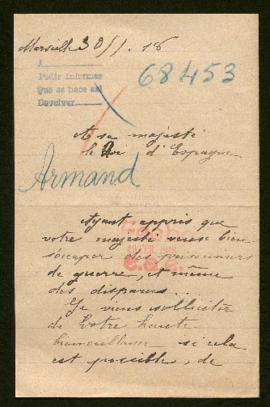 Marseille 30/1. 18
A
Pedir informes
Que se hace así
Devolver
68453
A sa majesté
le Roi d'Espagne
Armand
Ayant appris que
votre majesté veux bien
socuper des prisonniers
de guerre, et même
des disparus...
Je viens sollicitér
de Votre haute
bienveillance si cela
est possible, de